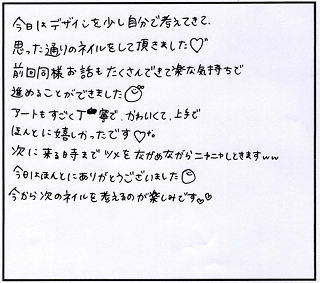 今日はデザインを少し自分で考えてきて、
思った通りのネイルをして頂きました♡
前回同様お話もたくさんできて楽な気持ちで
進めることができました
アートもすごく丁寧で、かわいくて、上手で
ほんとに嬉しかったです♡
次に来る日時までツメをながめながらニヤニヤしときますww
今日はほんとにありがとうございました
今から次のネイルを考えるのが楽しみです